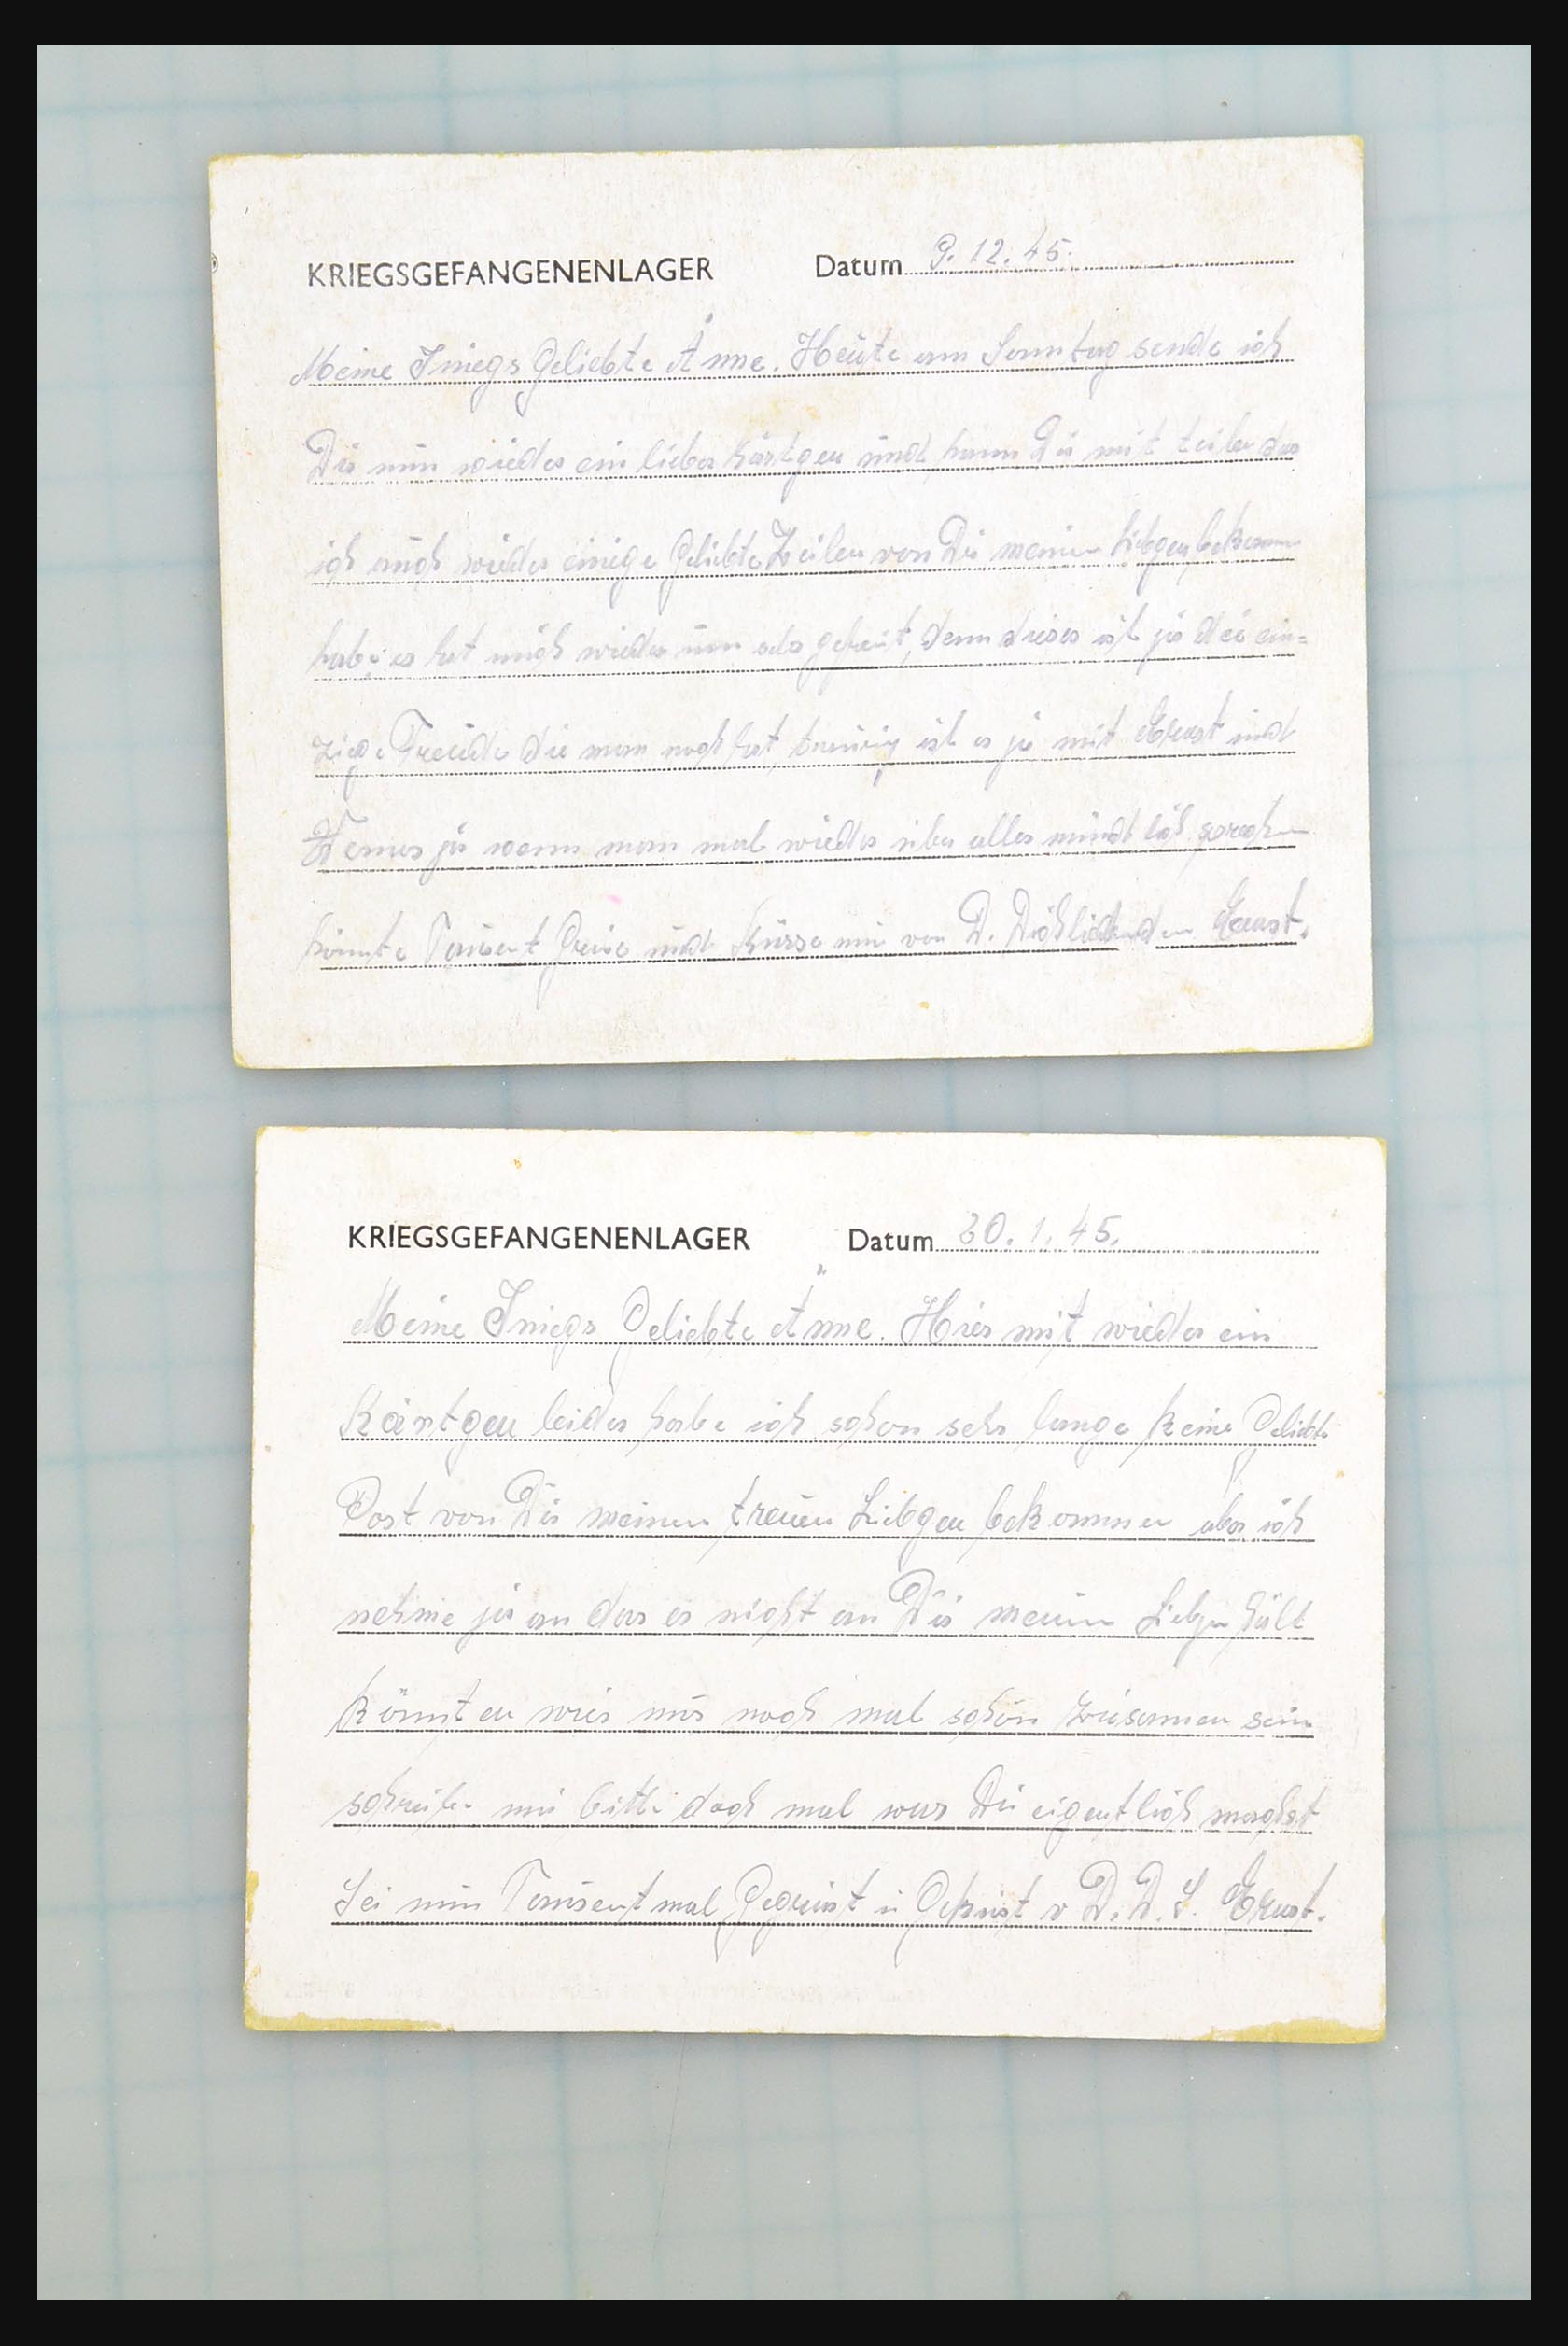 KRIEGSGEFANGENENLAGER Datum 9.12.45.
Meine Iniegs Geliebte Änne. Heute am Sonntag sende ich
Dir nun wieder ein liebes Kärtgen und kann Dir mit teilen das
ich auch wieder einige Geliebte Zeilen von Dir meinen Liebgen bekommen
habe es hat mich wieder nun sehr gefreut, denn dieses ist ja die ein-
zige Freude die man noch hat, traurig ist es ja mit Ernst und
ja wenn man mal wieder über alles mündlich sprechen
könnte Tausent Grüse und Küsse nun von D. Dich liebenden Ernst.
KRIEGSGEFANGENENLAGER Datum 30.1.45.
Meine Iniegs Geliebte Änne. Hier mit wieder ein
Kärtgen leider habe ich schon sehr lange keine Geliebte
Post von Dir meinen treuen Liebgen bekommen aber ich
nehme ja an das es nicht an Dir meinen Liebgen hält
könnten wir nur noch mal schön zusammen sein
schreibe mir bitte doch mal was Du eigentlich machst
Sei nun Tausent mal Gegrüst u Geküst v D. D. L. Ernst.